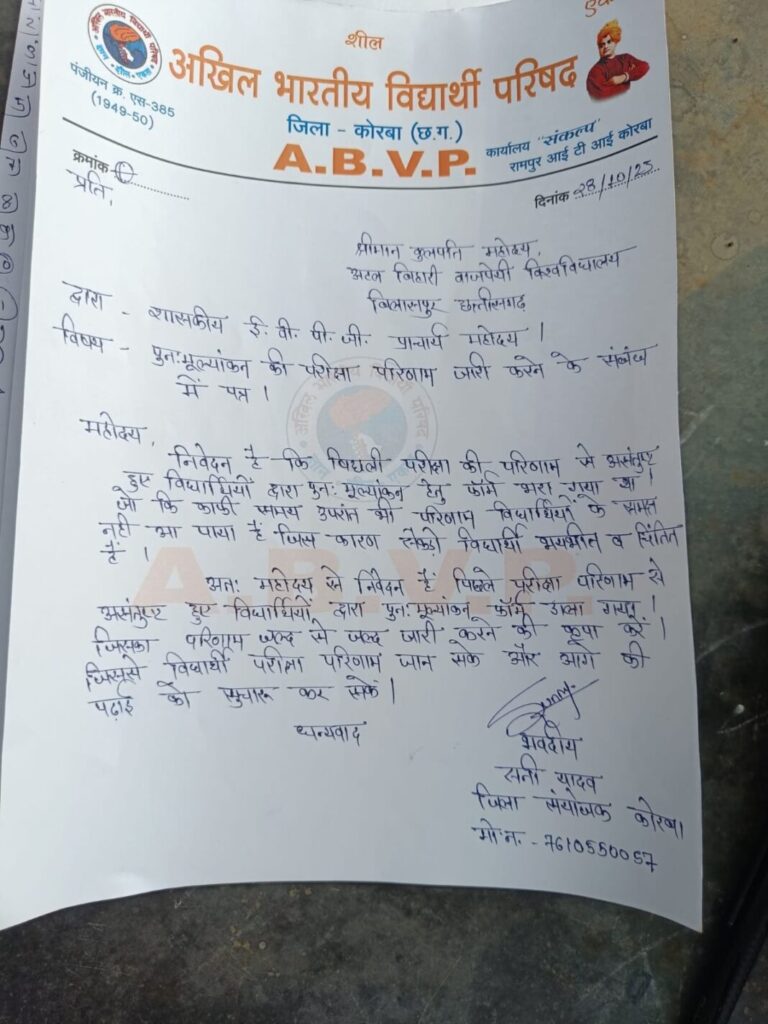 शील
अखिल भारतीय विद्यार्थी परिषद
पंजीयन क्र. एस-385
(1949-50)
जिला - कोरबा (छ.ग.)
A.B.V.P.
कार्यालय "संकल्प"
रामपुर आई टी आई कोरबा
क्रमांक
दिनांक 28/10/25
प्रति,
श्रीमान कुलपति महोदय,
अटल बिहारी वाजपेयी विश्वविद्यालय
बिलासपुर छत्तीसगढ़
द्वारा - शासकीय ई. वी. पी. जी. प्राचार्य महोदय ।
विषय - पुन:मूल्यांकन की परीक्षा परिणाम जारी करने के संबंध
में पत्र ।
महोदय,
निवेदन है कि पिछली परीक्षा की परिणाम से असंतुष्ट
हुए विद्यार्थियों द्वारा पुन:मूल्यांकन हेतु फॉर्म भरा गया था ।
जो कि काफी समय उपरांत भी परिणाम विद्यार्थियों के समक्ष
नही आ पाया है जिस कारण सैकडो विद्यार्थी भयभीत व चिंतित
है ।
अत: महोदय से निवेदन है पिछले परीक्षा परिणाम से
असंतुष्ट हुए विद्यार्थियों द्वारा पुन:मूल्यांकन फॉर्म डाला गया ।
जिसका परिणाम जल्द से जल्द जारी करने की कृपा करें ।
जिससे विद्यार्थी परीक्षा परिणाम जान सके और आगे की
पढ़ाई को सुचारू कर सकें ।
धन्यवाद
भवदीय
सनी यादव
जिला संयोजक कोरबा
मो.न. - 7610550057